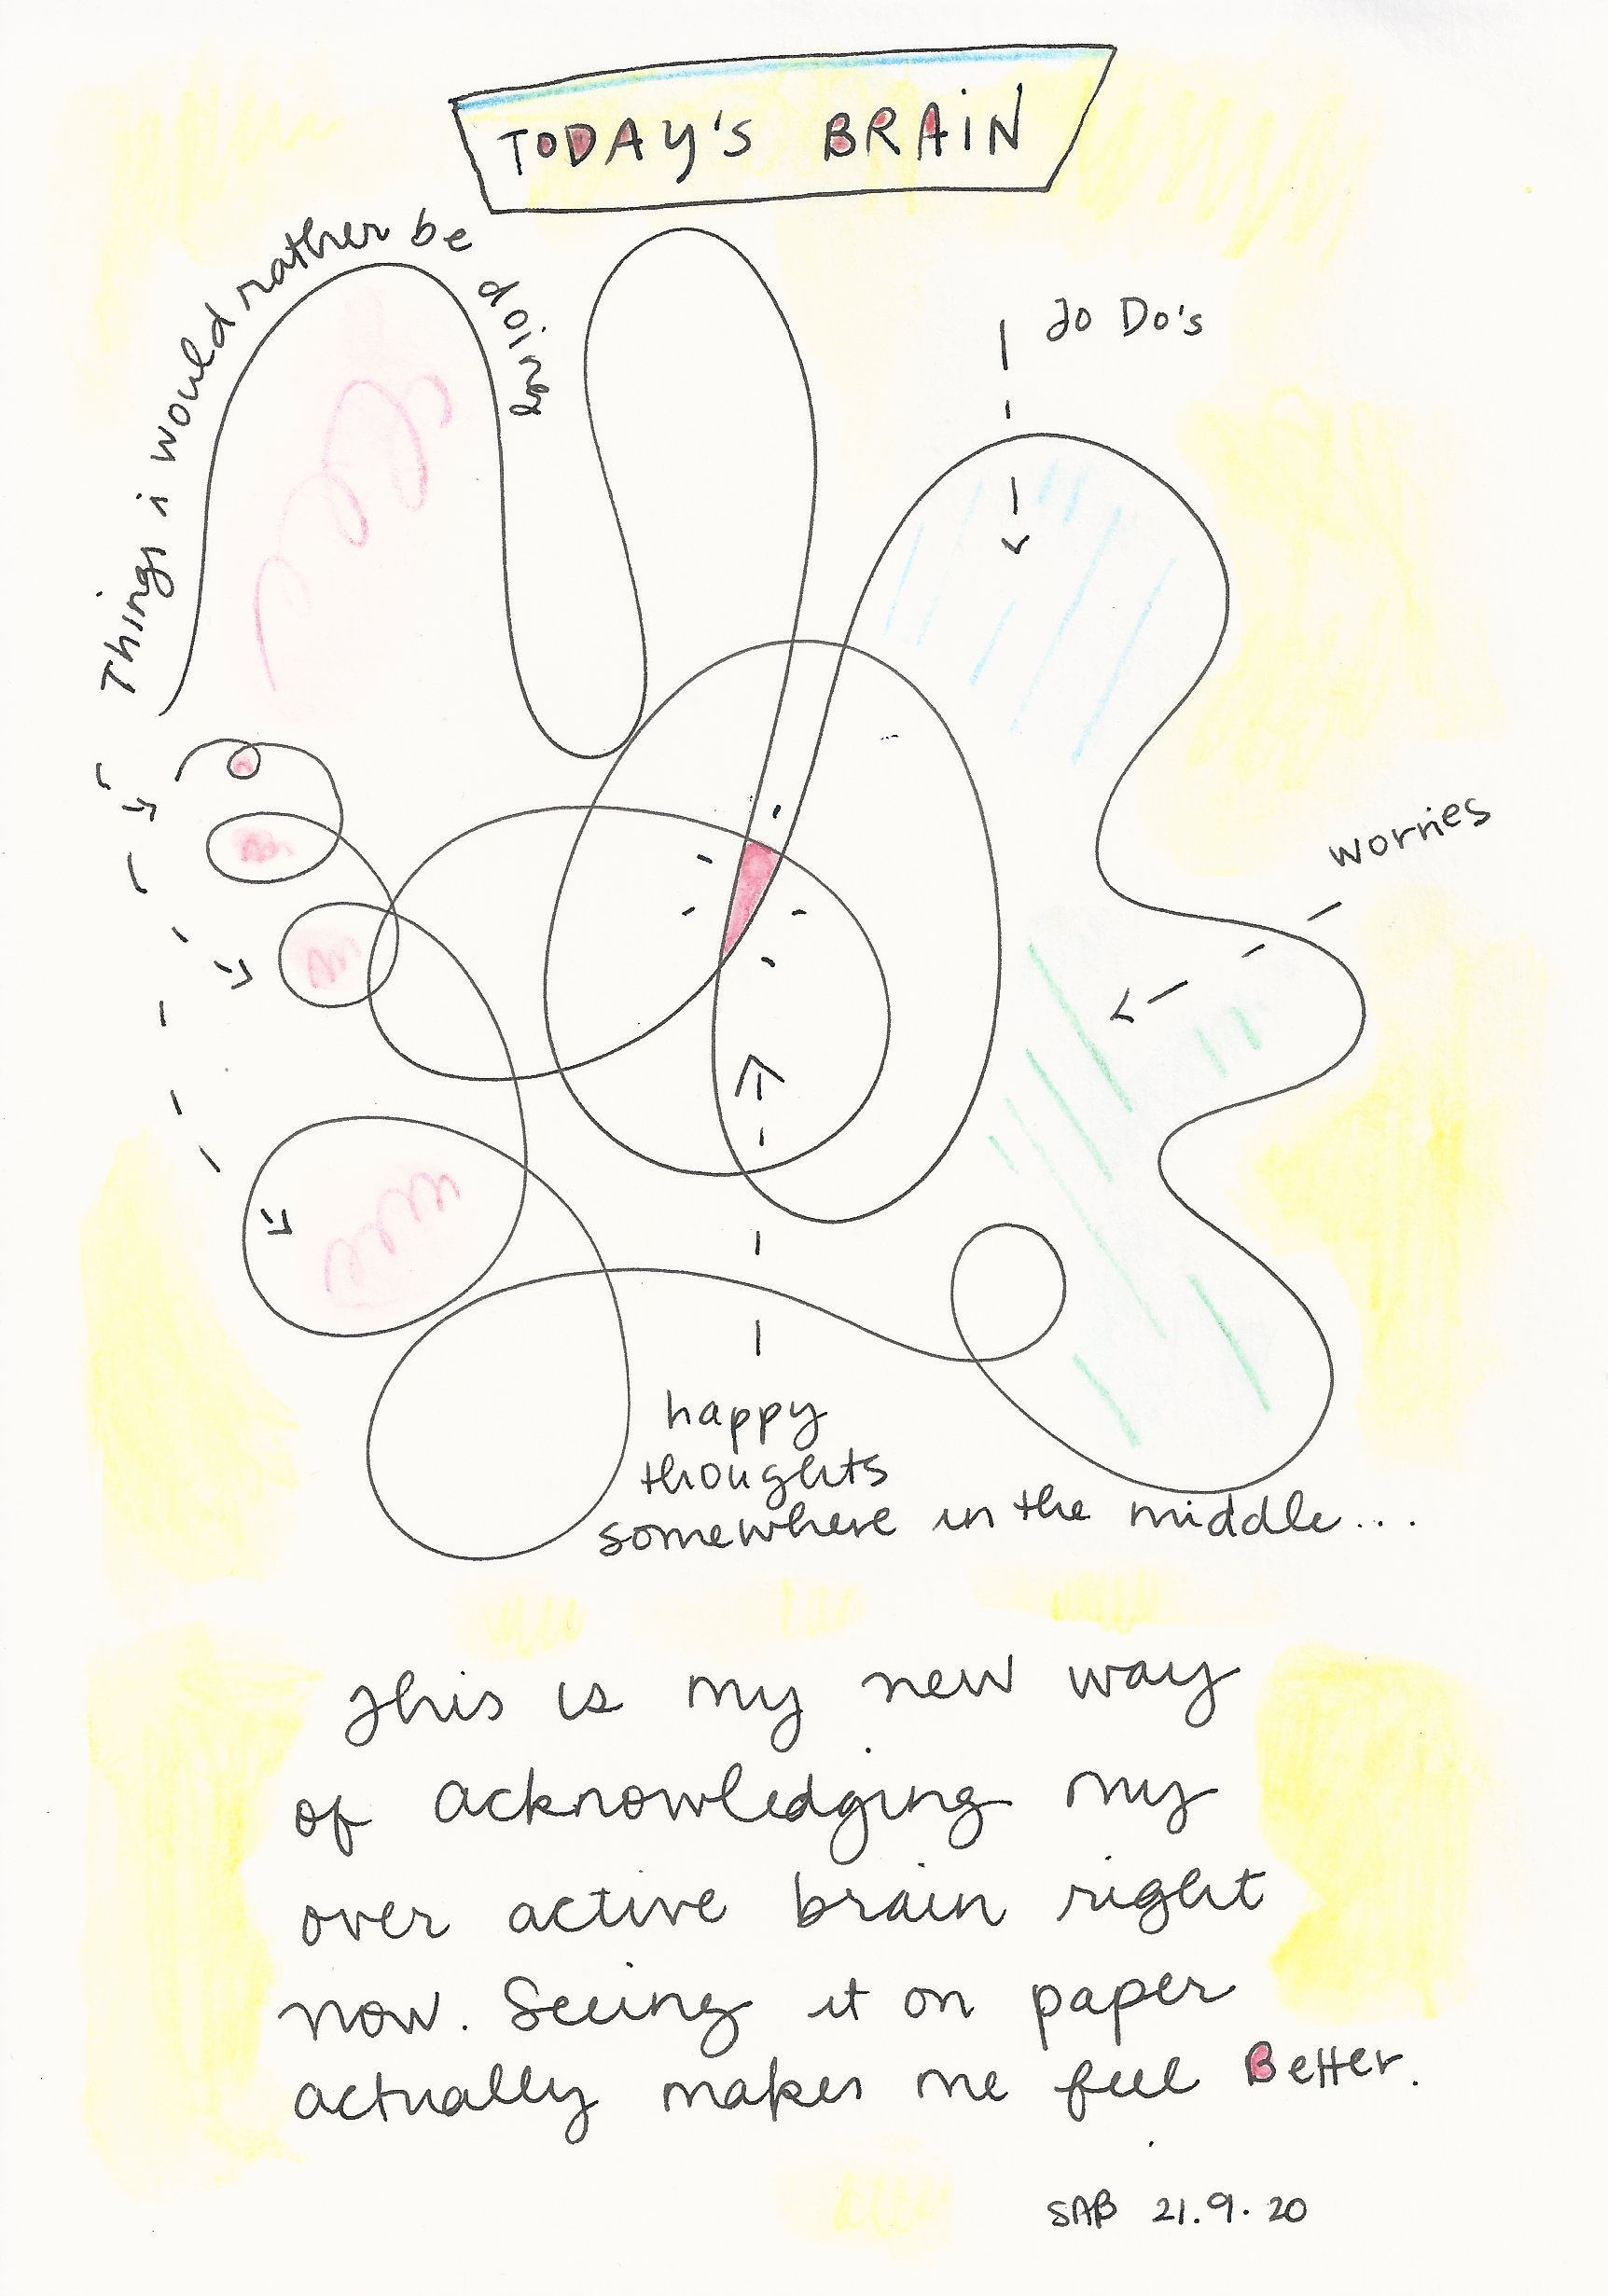 TODAY'S BRAiN
Things i would rather be doing
To Do's
worries
happy
thoughts
somewhere in the middle...
This is my new way
of acknowledging my
over active brain right
now. Seeing it on paper
actually makes me feel Better.
SAB 21.9.20